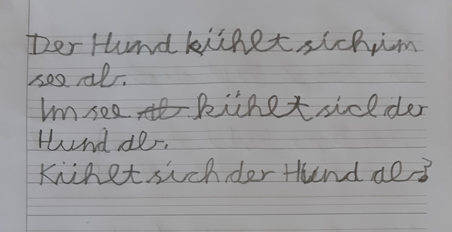 Der Hund kühlt sich, im
see ab.
Im see ab kühlt sich der
Hund ab.
Kühlt sich der Hund ab?